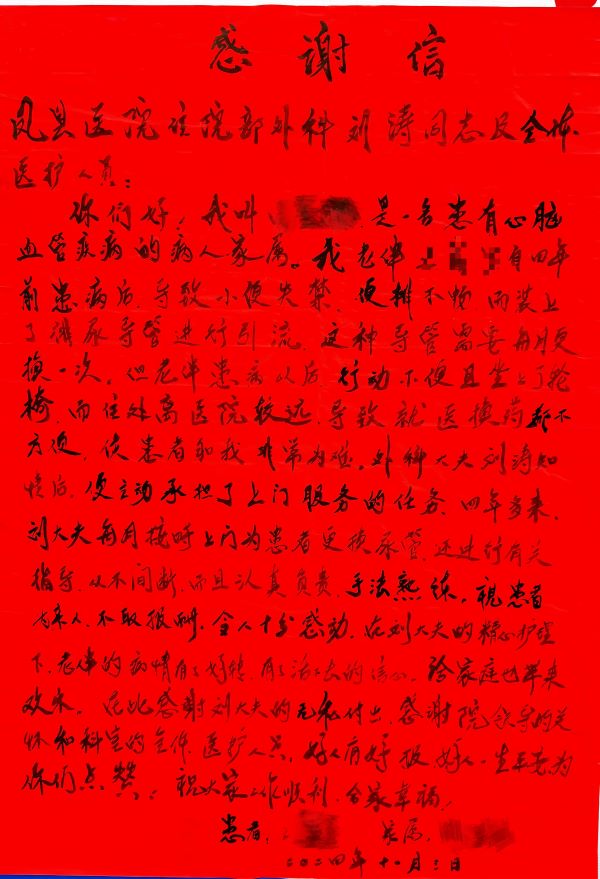 感谢信
凤县医院住院部外科刘涛同志及全体
医护人员：
你们好！我叫 是一名患有心脑
血管疾病的病人家属。我老伴 自四年
前患病后，导致小便失禁，便排不畅而装上
了 尿导管进行引流，这种导管需要每月更
换一次。但老伴患病以后行动不便且坐上了轮
椅，而住处离医院较远，导致就医换药都不
方便，使患者和我非常为难。外科大夫刘涛知
情后，便主动承担了上门服务的任务，四年多来，
刘大夫每月按时上门为患者更换尿管，还进行有关
指导，从不间断，而且认真负责，手法熟练，视患者
为亲人，不取报酬，令人十分感动，在刘大夫的精心护理
下，老伴的病情有了好转，有了活下去的信心，给家庭也带来
欢乐。在此感谢刘大夫的无私付出，感谢院领导的关
怀和科室的全体医护人员，好人有好报，好人一生平安为
你们点赞！祝大家工作顺利，合家幸福！
患者： 家属：
二〇二四年十一月三日